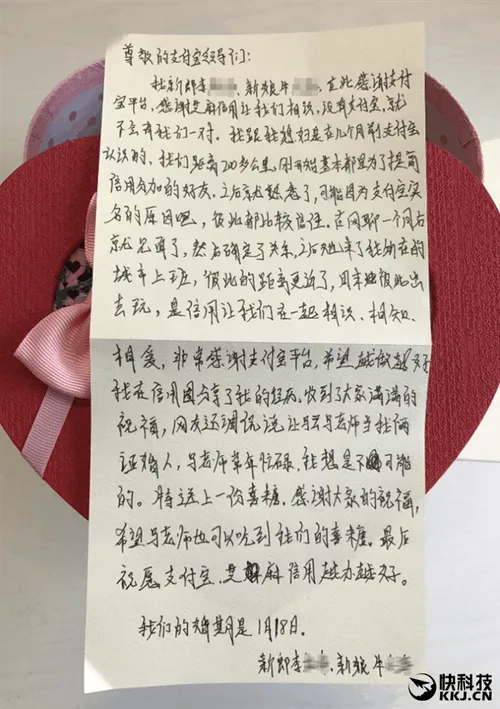 尊敬的支付宝领导们:
我新郎李 、新娘牛 ,在此感谢支付
宝平台,感谢芝麻信用让我们相识,没有支付宝,就
不会有我们一对。我跟我媳妇是在几个月前支付宝
认识的,我们距离200多公里,刚开始基本都是为了提高
信用分加的好友,之后就熟悉了,可能因为支付宝实
名的原因吧,彼此都比较信任。在网聊一个月后
就见面了,然后确定了关系,之后她来了我所在的
城市上班,彼此的距离更近了,周末也彼此出
去玩,是信用让我们在一起相识、相知、
相爱,非常感谢支付宝平台,希望越做越好
我在信用圈分享了我的经历,收到了大家满满的
祝福,网友还调侃说让马云马老师当我俩
证婚人,马老师常年忙碌,我想是不可能
的。特送上一份喜糖,感谢大家的祝福,
希望马老师也可以吃到我们的喜糖。最后
祝愿支付宝、芝麻信用越办越好。
我们的婚期是1月18日.
新郎李 、新娘牛
快科技
KKJ.CN